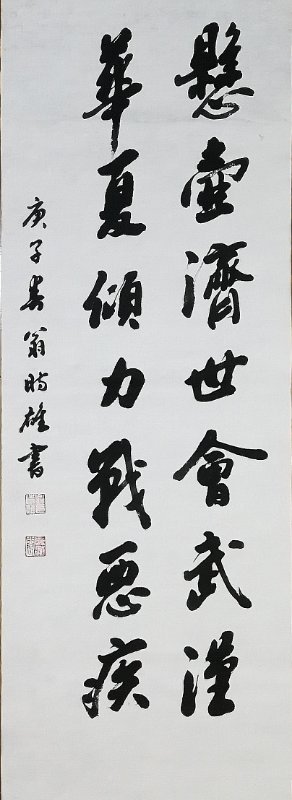 懸壺濟世會武漢
華夏傾力戰惡疾
庚子春翁時雄書